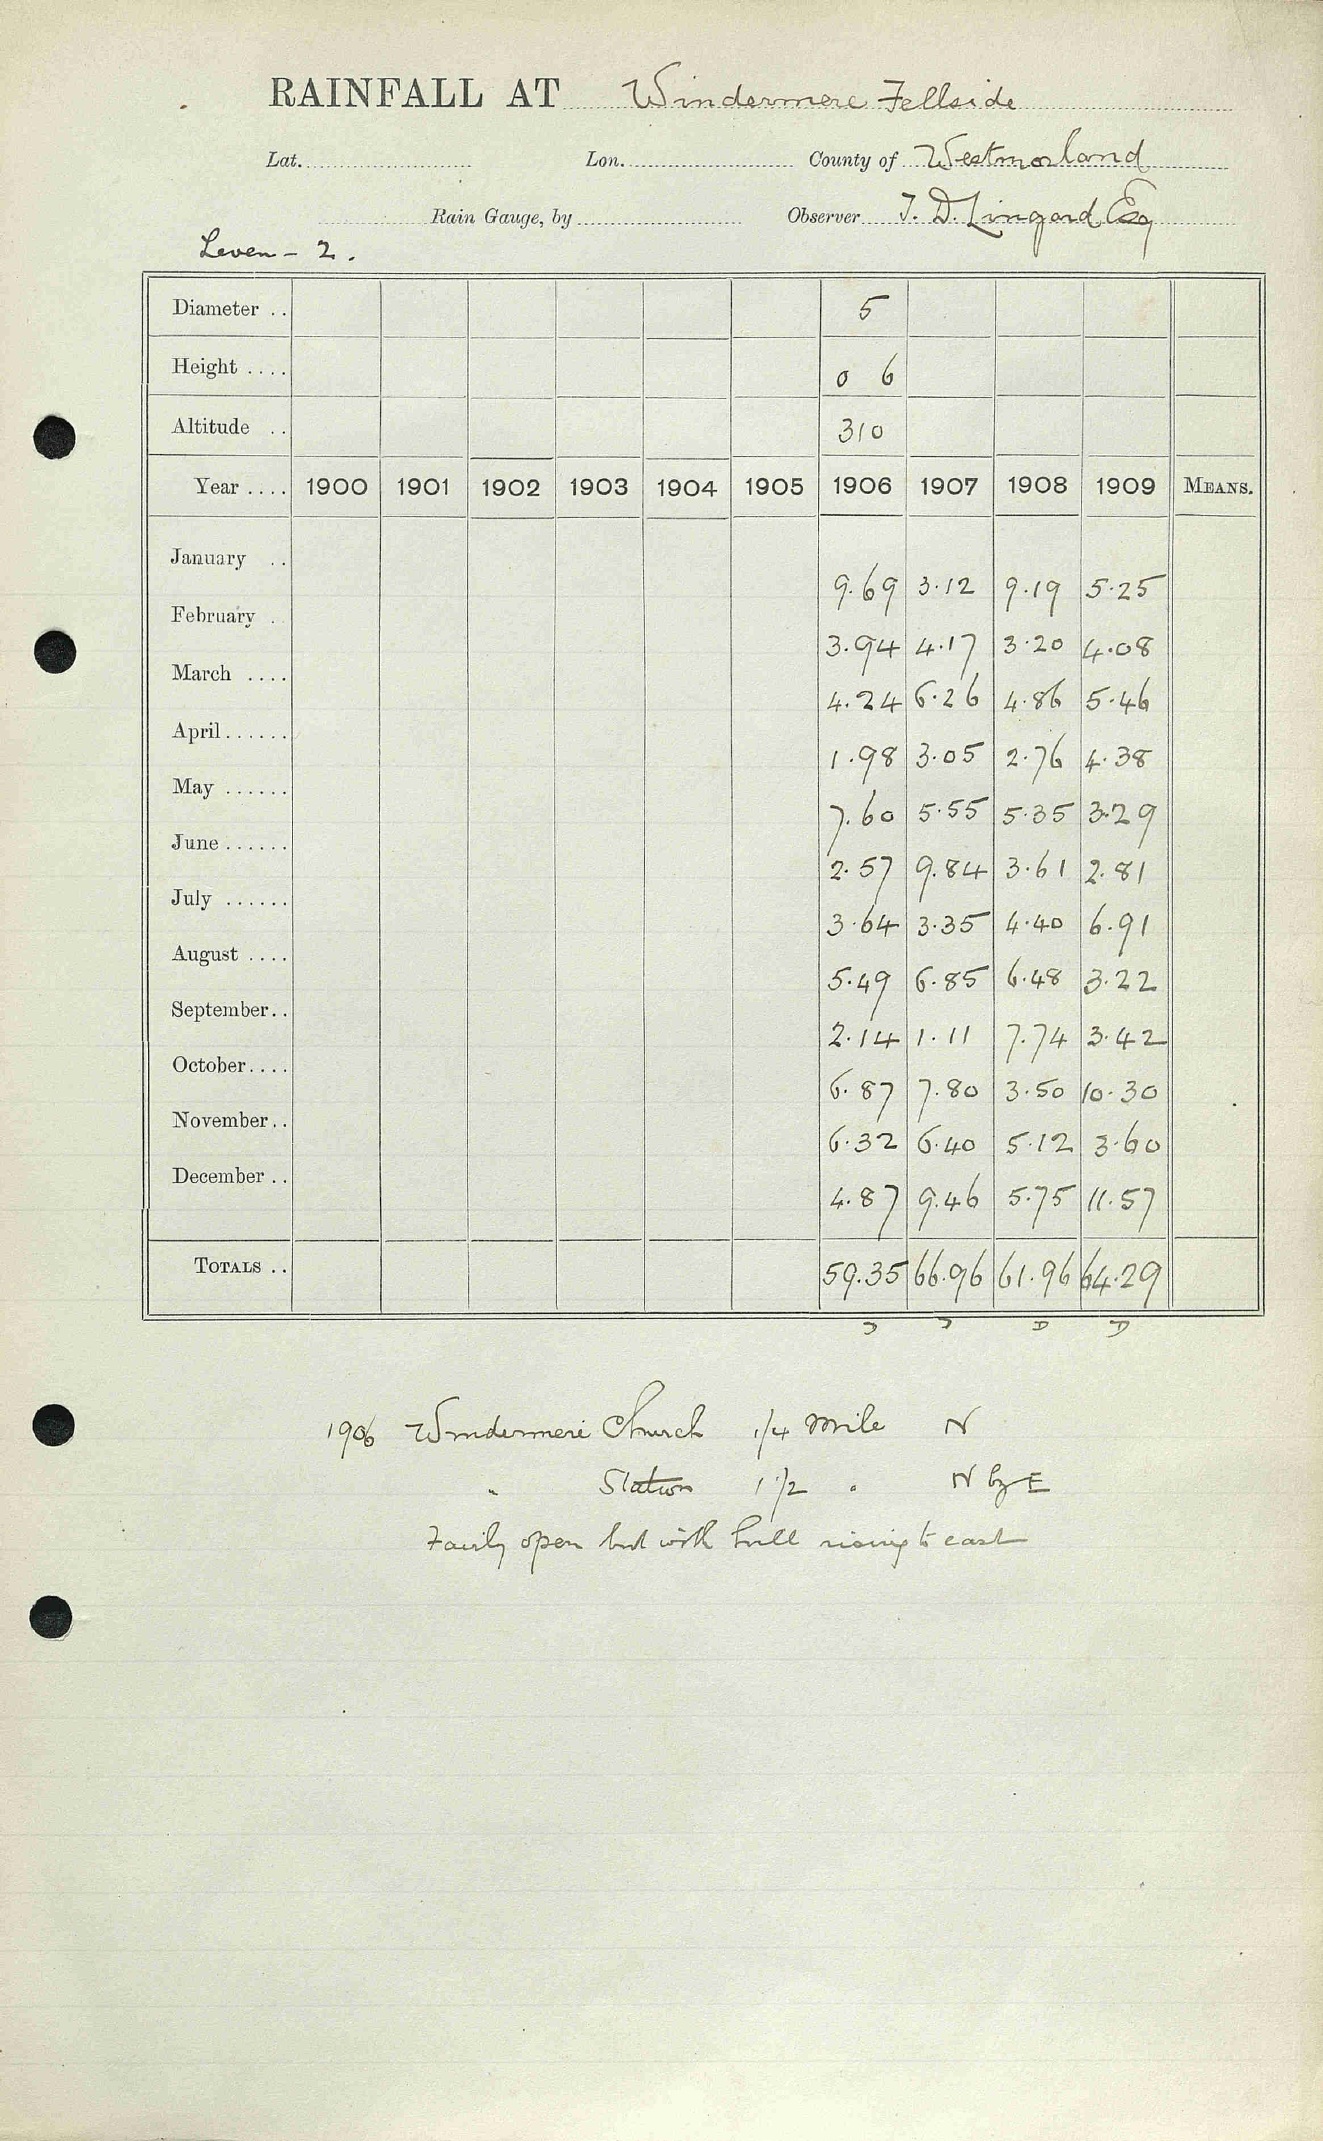 RAINFALL AT Windermere Fellside
Lat. Lon. County of Westmorland
Rain Gauge, by Observer T. D. Lingard Esq
Leven - 2.
Diameter .. 5
Height .... 0 6
Altitude .. 310
Year .... 1900 1901 1902 1903 1904 1905 1906 1907 1908 1909 MEANS.
January .. 9.69 3.12 9.19 5.25
February . 3.94 4.17 3.20 4.08
March .... 4.24 6.26 4.86 5.46
April...... 1.98 3.05 2.76 4.38
May ...... 7.60 5.55 5.35 3.29
June ...... 2.57 9.84 3.61 2.81
July ...... 3.64 3.35 4.40 6.91
August .... 5.49 6.85 6.48 3.22
September.. 2.14 1.11 7.74 3.42
October.... 6.87 7.80 3.50 10.30
November.. 6.32 6.40 5.12 3.60
December .. 4.87 9.46 5.75 11.57
TOTALS .. 59.35 66.96 61.96 64.29
D D
1906 Windermere Church 1/4 mile N
" Station 1 1/2 " N by E
Fairly open but with hill rising to east